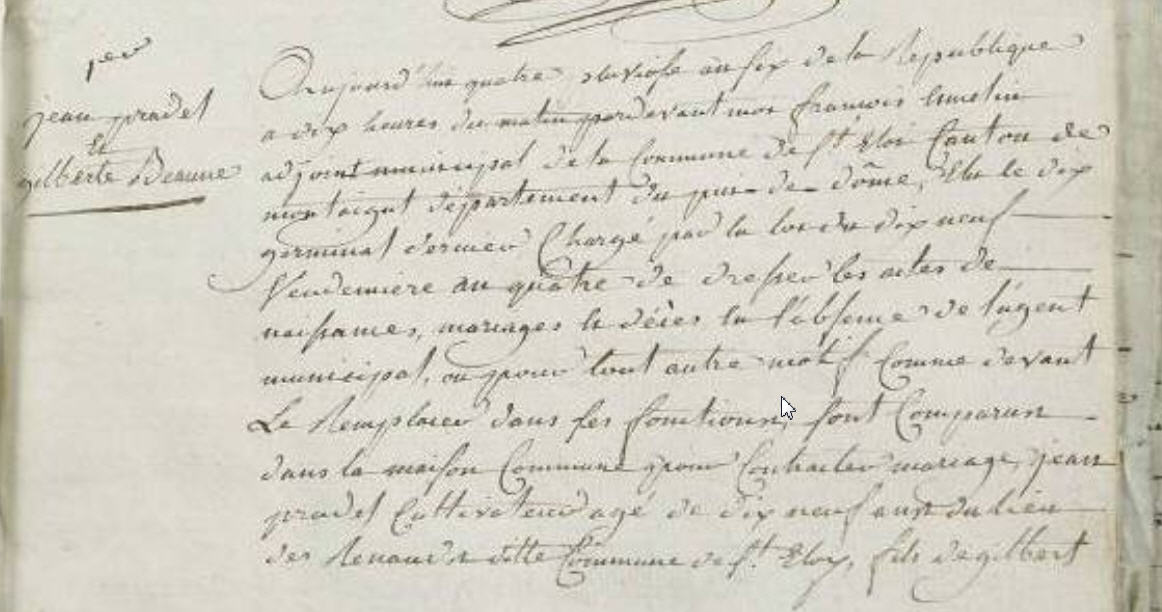 per
jean pradel
Et
gilberte Beaune
Aujourd'hui quatre pluviose an six de la Republique
a dix heures du matin pardevant moi francois
adjoint municipal de la Commune de st Eloi Canton de
montaigut département du pui-de-dôme, Elu le dix
germinal dernier Chargé par la loi du dix neuf
Vendemiere an quatre de dresser les actes de
naissances, mariages et décès en l'absence de l'agent
municipal, ou pour tout autre motif Comme devant
Le Remplacer dans ses fonctions, sont Comparus
dans la maison Commune pour Contracter mariage, jean
pradel Cultivateur agé de dix neuf ans du lieu
des ditte Commune de st. Eloy, fils de gilbert